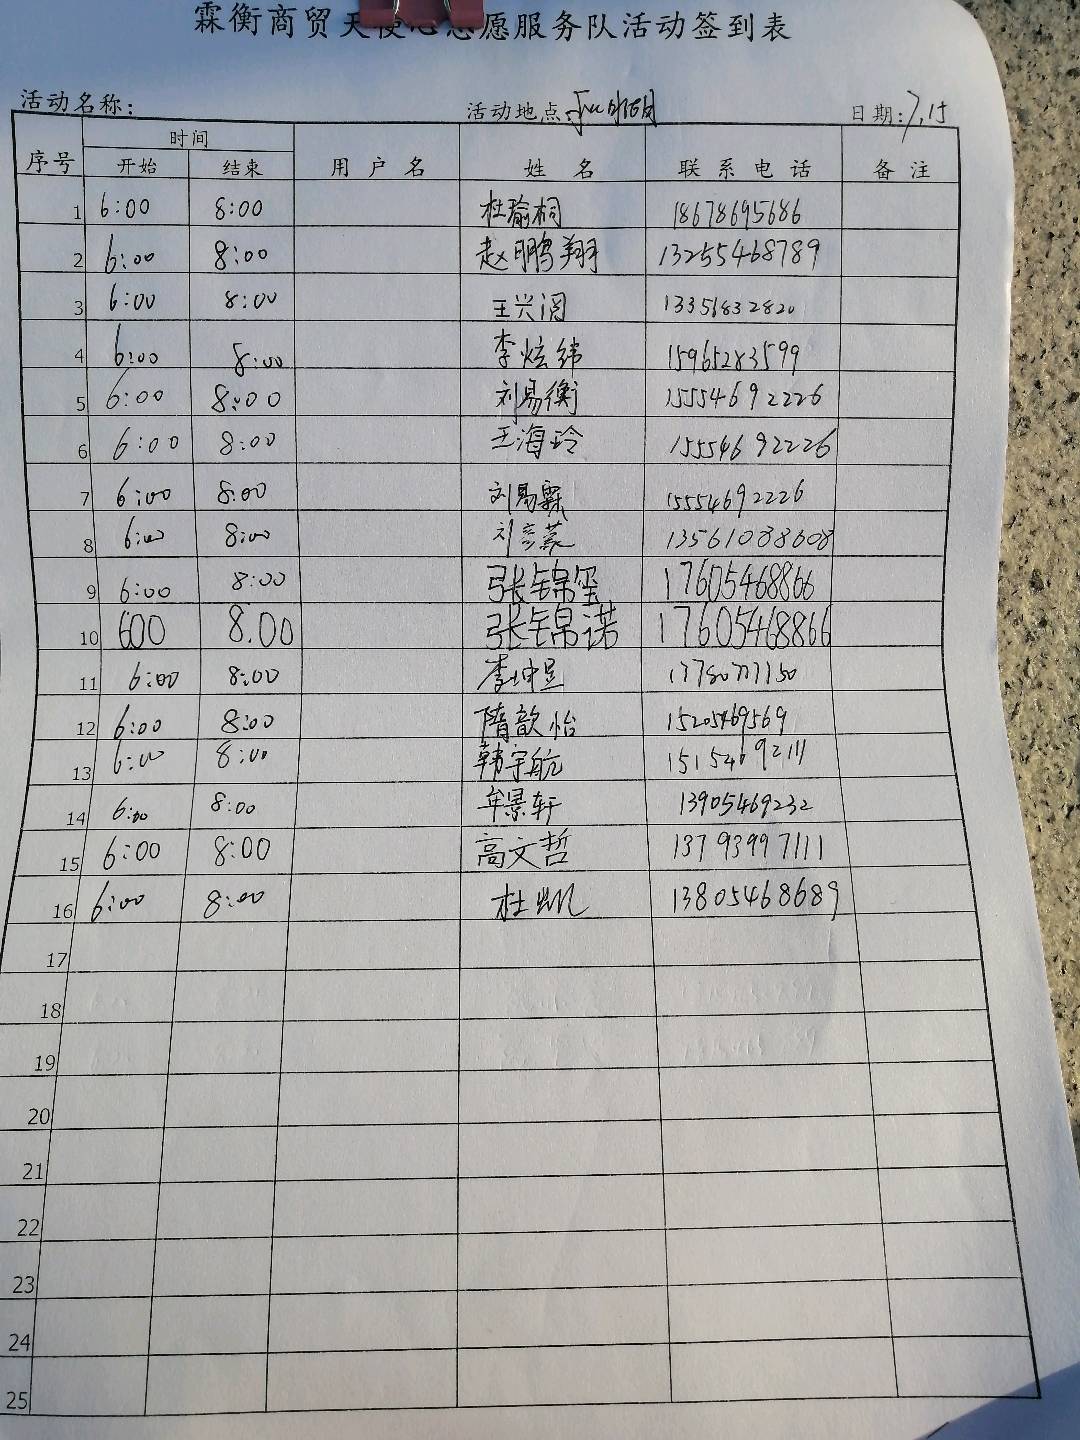 霖衡商贸天使心志愿服务队活动签到表
活动名称: 活动地点: 日期: 7.15
序号 时间 用户名 姓名 联系电话 备注
开始 结束
1 6:00 8:00 杜瑜桐 18678695686
2 6:00 8:00 赵鹏翔 13255468789
3 6:00 8:00 王兴阔 13351832820
4 6:00 8:00 李炫纬 15965283599
5 6:00 8:00 刘易衡 15554692226
6 6:00 8:00 王海玲 15554692226
7 6:00 8:00 刘易霖 15554692226
8 6:00 8:00 刘彦蒙 13561088608
9 6:00 8:00 张锦玺 17605468866
10 600 8.00 张锦诺 17605468866
11 6:00 8:00 李坤昱
12 6:00 8:00 隋歆怡 15205469569
13 6:00 8:00 韩宇航 15154692111
14 6:00 8:00 牟景轩 13905469232
15 6:00 8:00 高文哲 13793997111
16 6:00 8:00 杜 13805468689
17
18
19
20
21
22
23
24
25